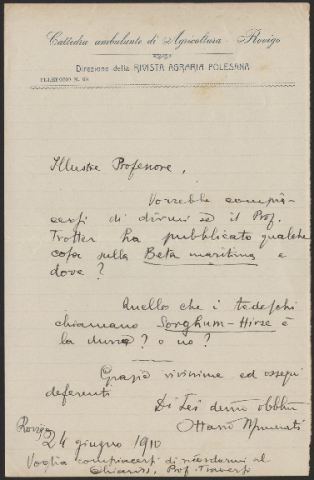 Cattedra ambulante di Agricoltura - Rovigo
Direzione della RIVISTA AGRARIA POLESANA
TELEFONO N.
Illustre Professore,
Vorrebbe compia-
cersi di dirmi se il Prof.
Trotter ha pubblicato qualche
cosa sulla Beta maritima e
dove?
Quello che i tedeschi
chiamano Sorghum-Hirse è
la durra? o no?
Grazie vivissime ed ossequi
deferenti
Di Lei dev.mo obbl.mo
Ottavio Munerati
Rovigo
24 giugno 1910
Voglia compiacersi di ricordarmi al
Chiariss. Prof. Traverso